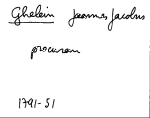 Ghelein Joannes Jacobus
procuram
1791-51